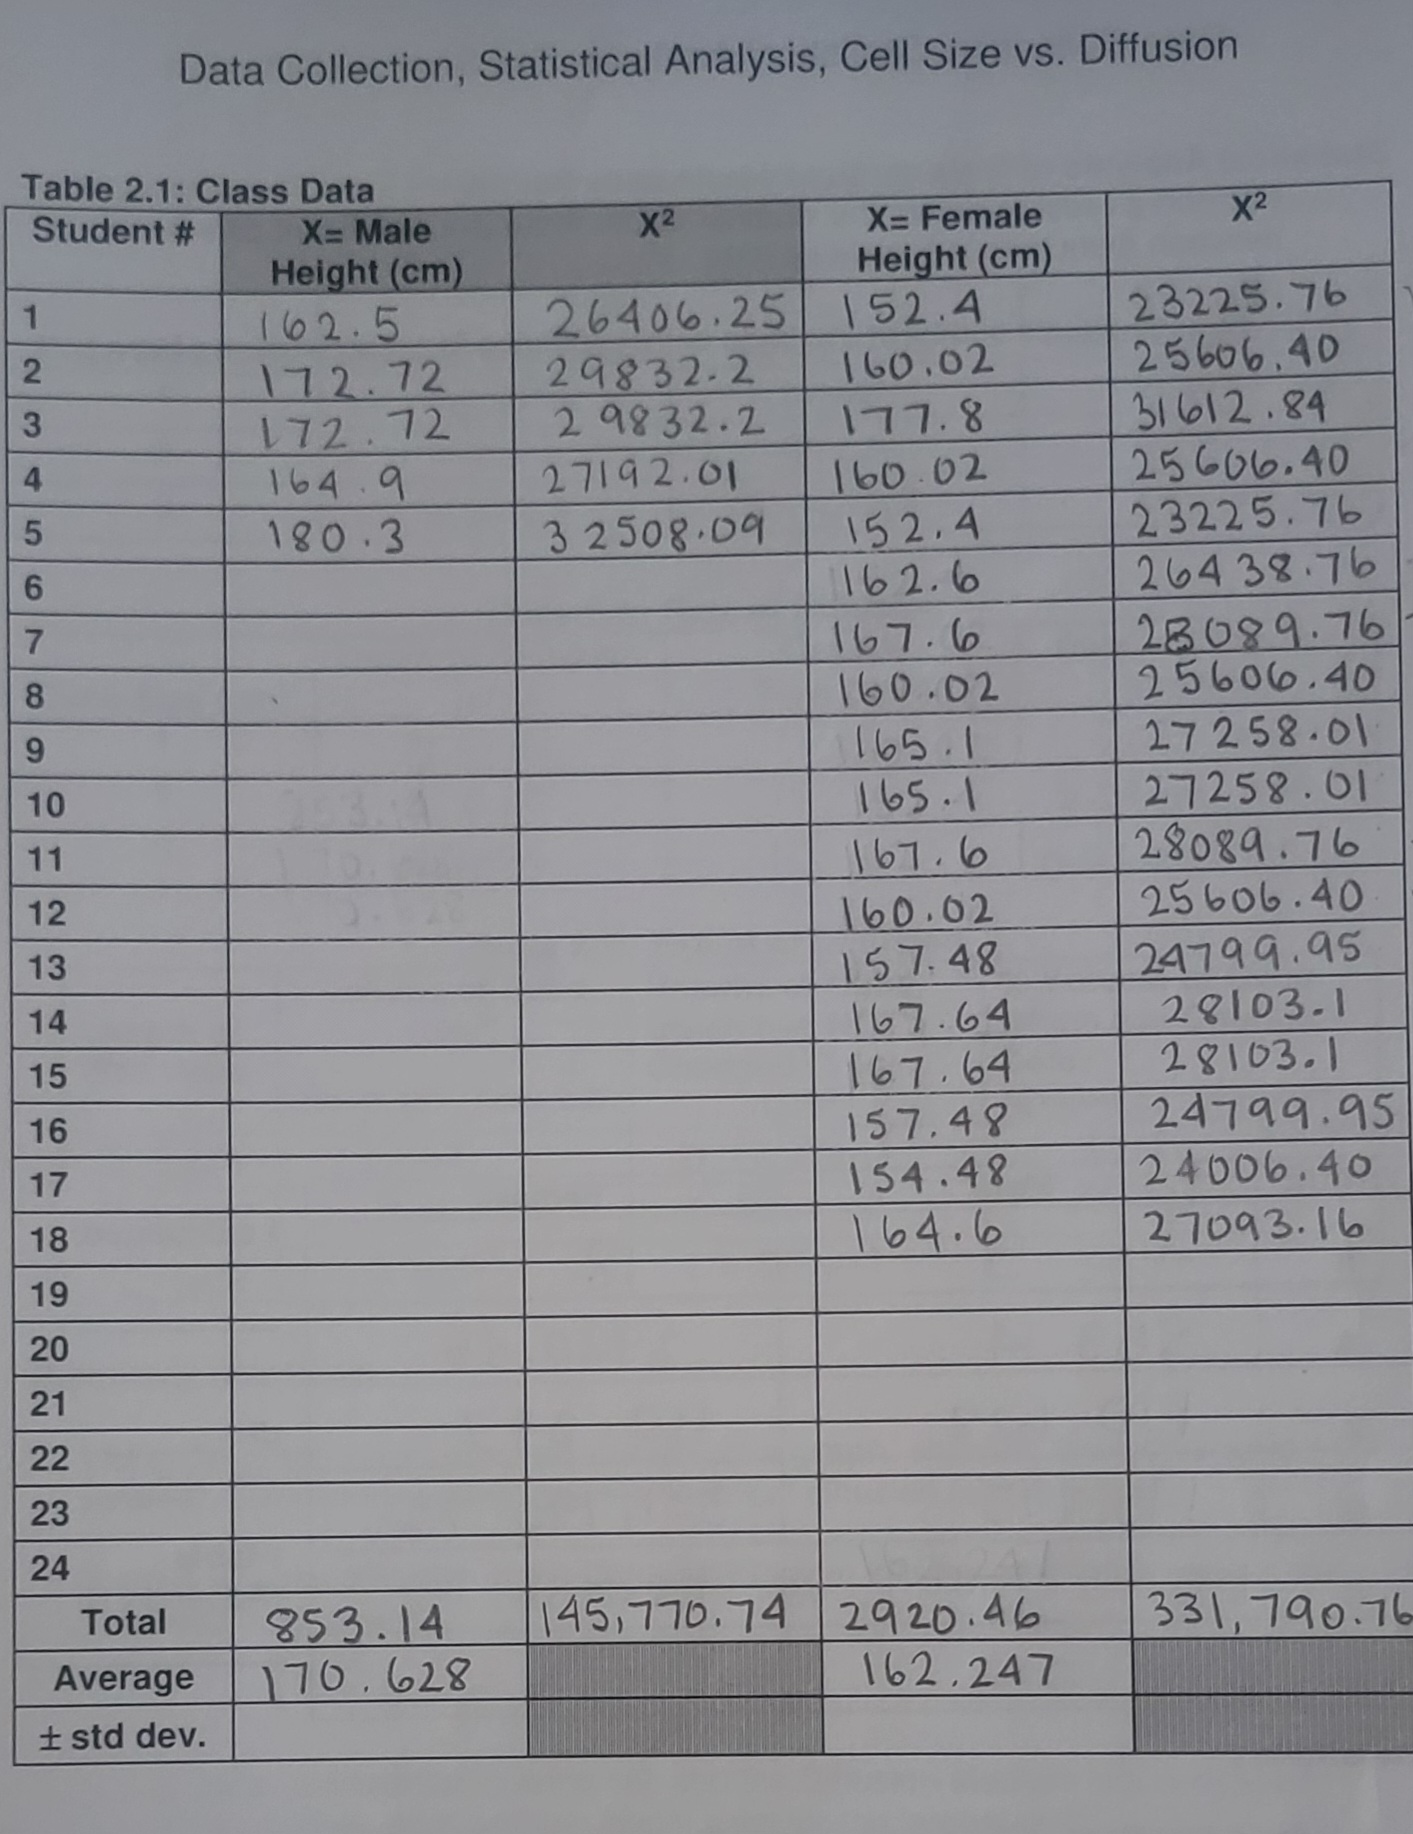 Data Collection, Statistical Analysis, Cell Size vs. Diffusion
Table 2.1: Class Data
Student # X= Male Height (cm) X² X= Female Height (cm) X²
1 162.5 26406.25 152.4 23225.76
2 172.72 29832.2 160.02 25606.40
3 172.72 29832.2 177.8 31612.84
4 164.9 27192.01 160.02 25606.40
5 180.3 32508.09 152.4 23225.76
6 162.6 26438.76
7 167.6 28089.76
8 160.02 25606.40
9 165.1 27258.01
10 165.1 27258.01
11 167.6 28089.76
12 160.02 25606.40
13 157.48 24799.95
14 167.64 28103.1
15 167.64 28103.1
16 157.48 24799.95
17 154.48 24006.40
18 164.6 27093.16
19
20
21
22
23
24
Total 853.14 145,770.74 2920.46 331,790.76
Average 170.628 162.247
± std dev.